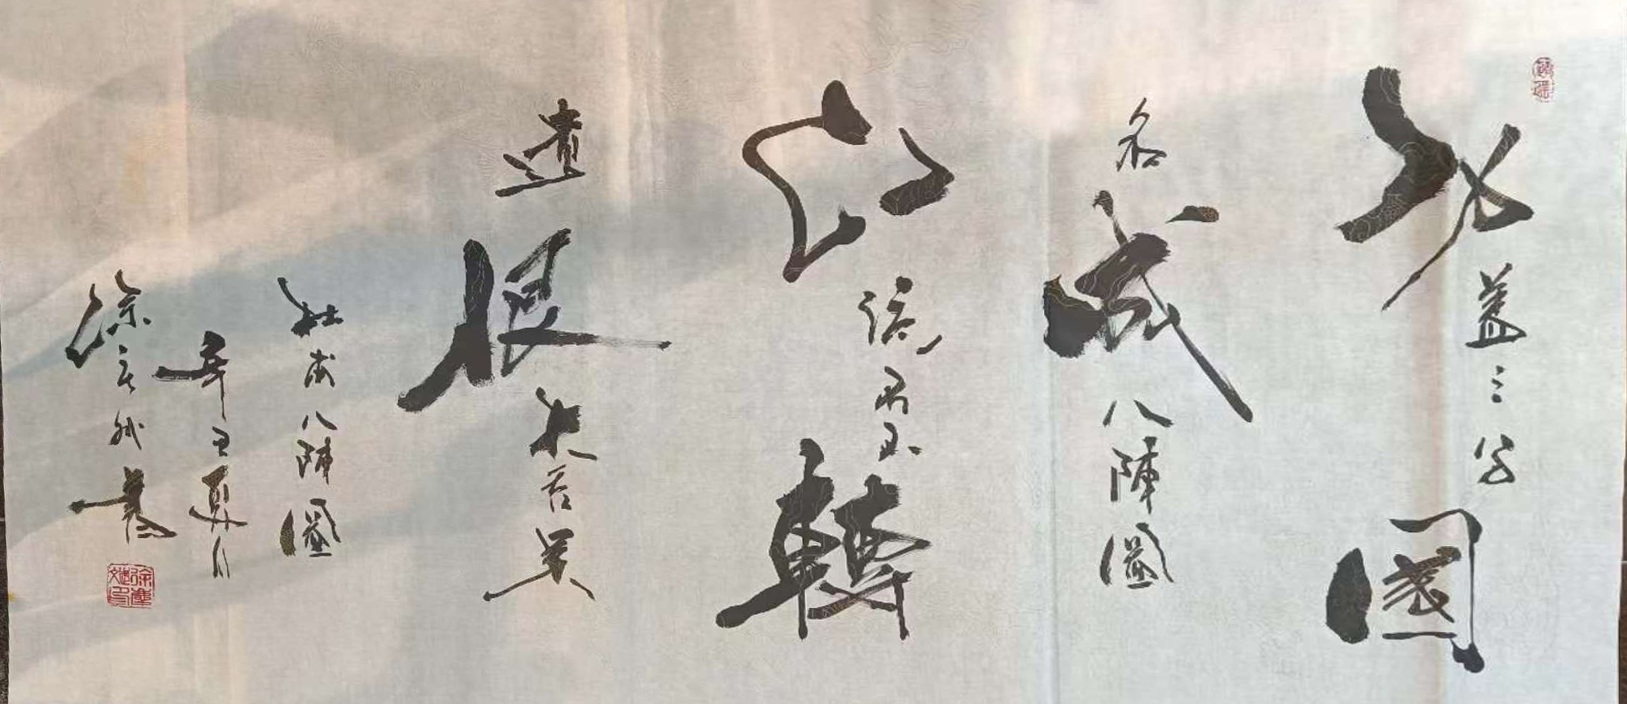 功蓋三分國
名成八陣圖
江流石不轉
遺恨失吞吳
杜甫八陣圖
辛丑夏月
徐